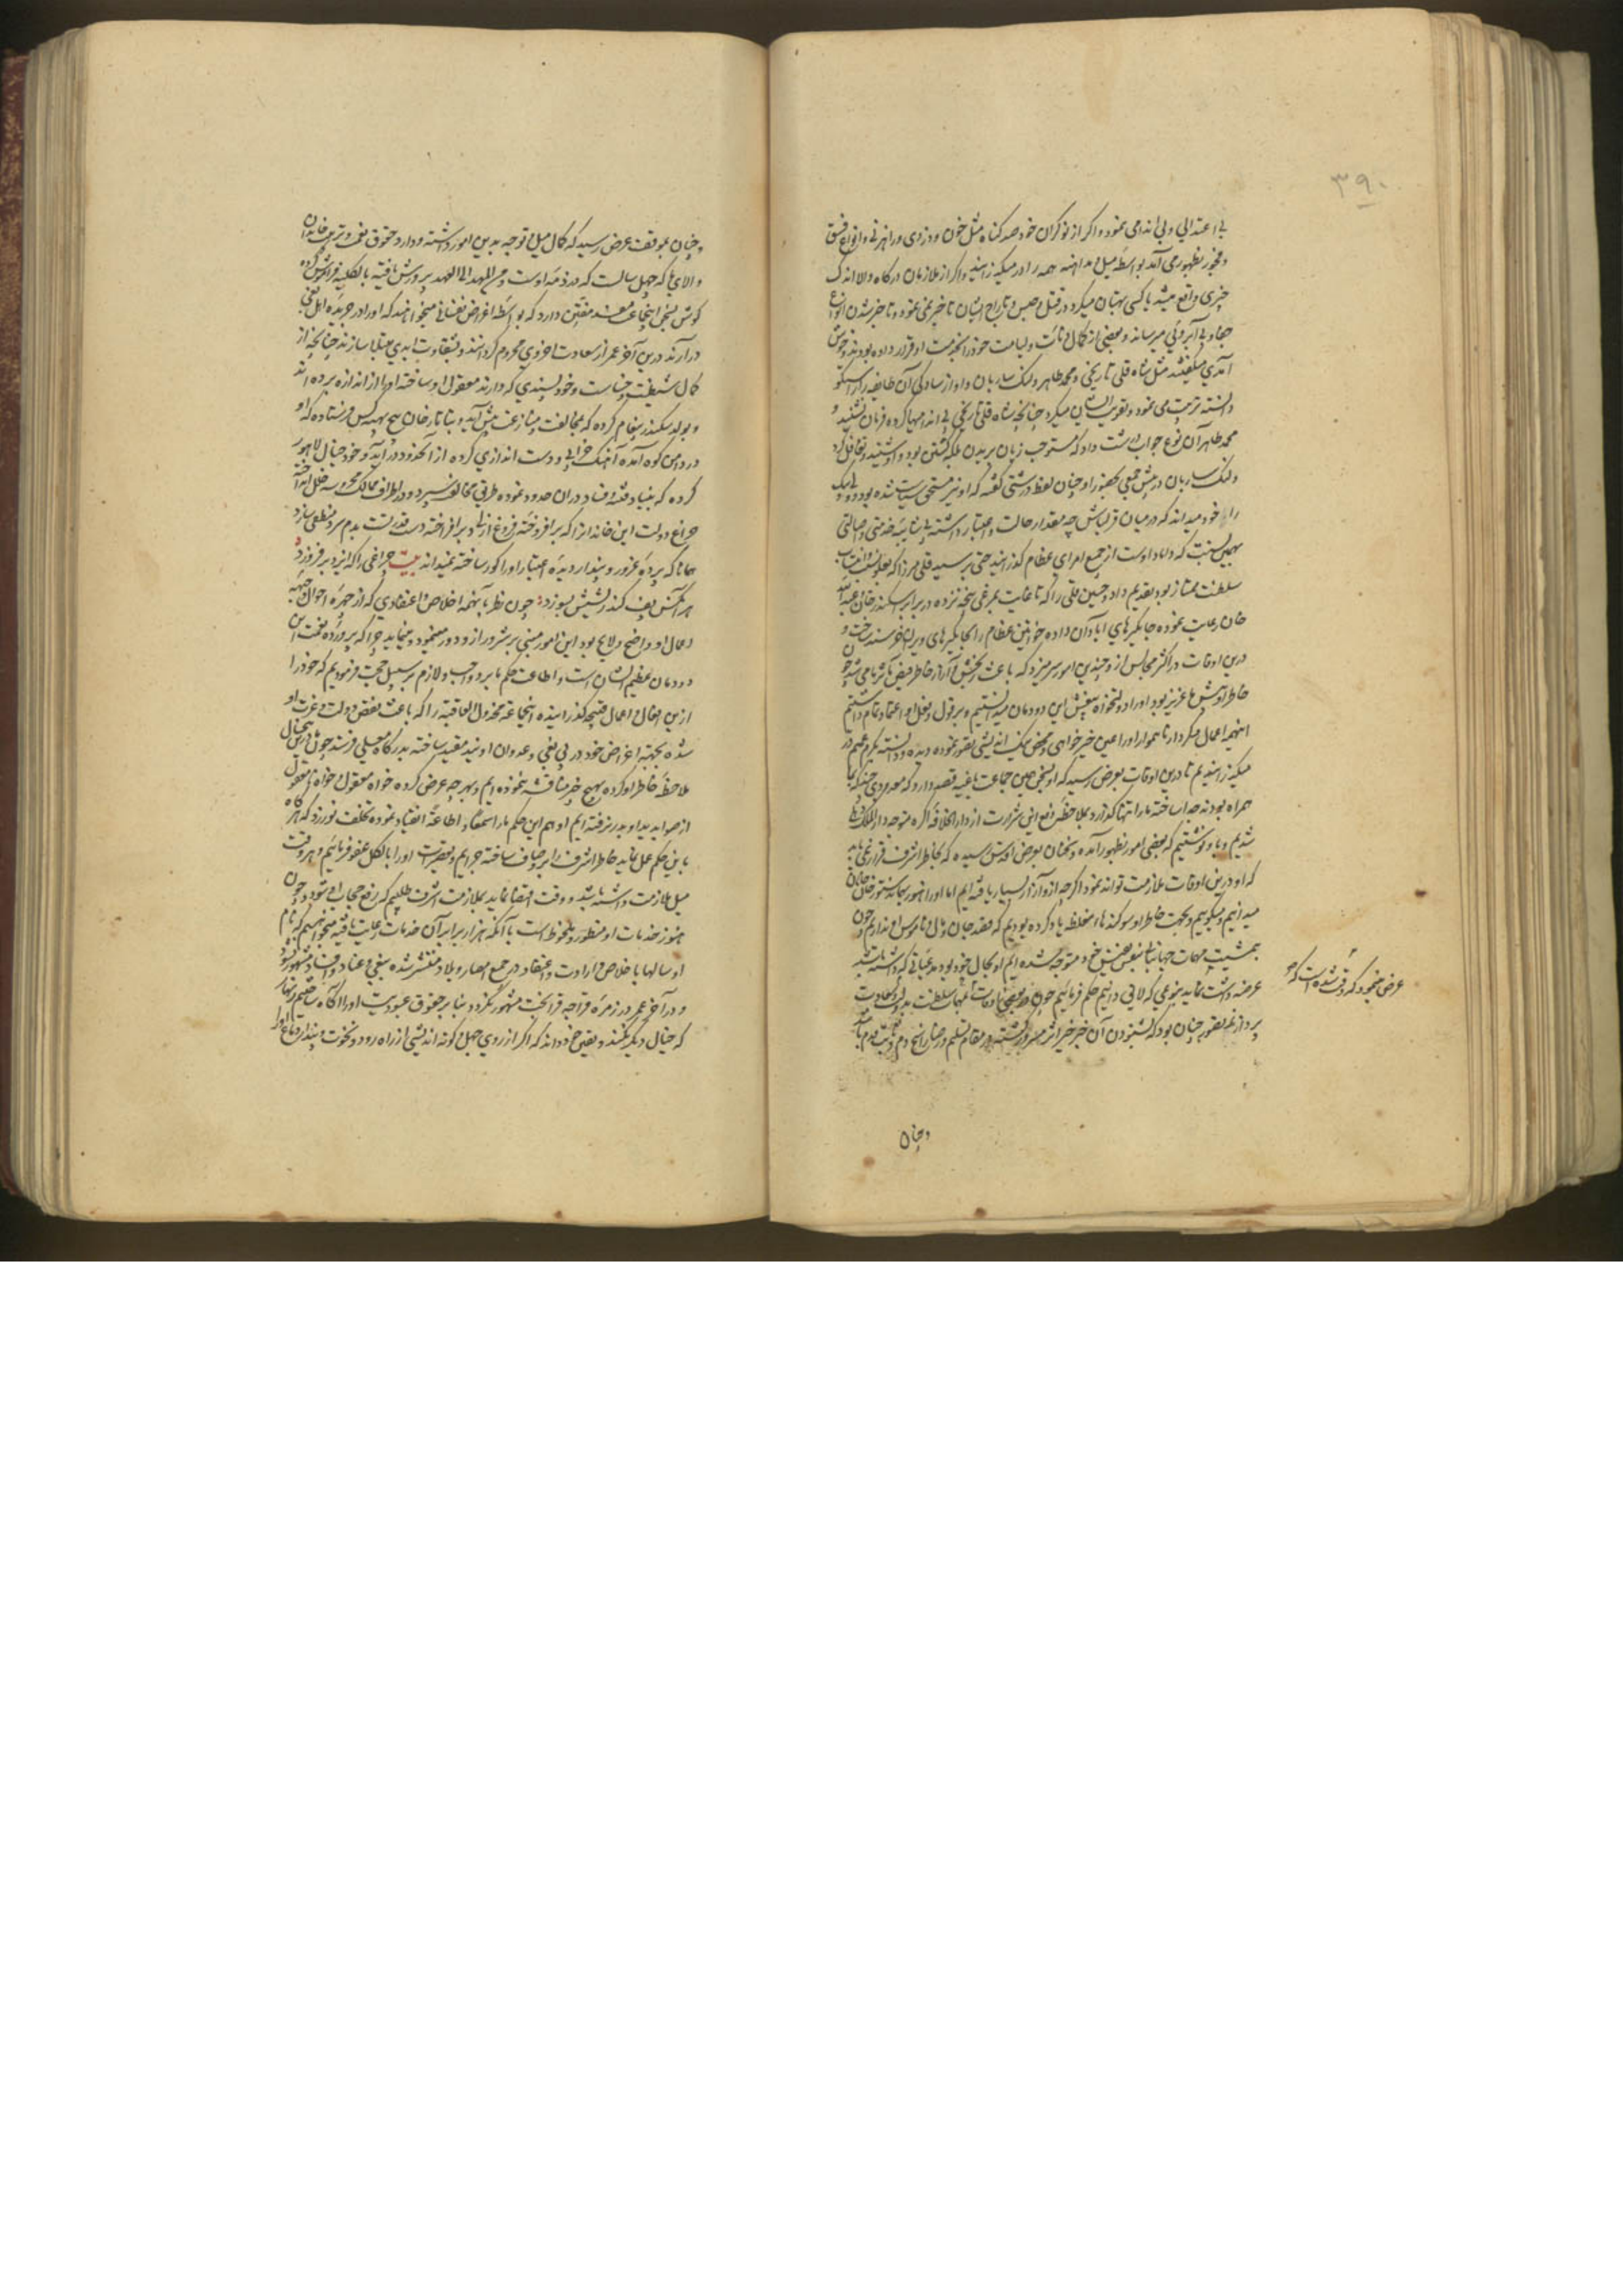 ۳۹۰
بی اعتدالی و بی اندامی نمود و اگر از نوکران خود صد گناه مثل خون و دزدی و راهزنی و انواع فسق
و فجور بظهور می آمد بواسطه میل و مداهنه همه را در میگذرانید و اگر از ملازمان درگاه والا اندک
چیزی واقع میشد یا کسی بهتان میکرد در قتل و حبس و تاراج ایشان تاخیر نمی نمود و تاخیر شدن انواع
جفا و بی آبروئی میرساند و بعضی از کمال و لیامت خود را بخدمت او قرار داده بودند و خوش
آمدی میگفتند مثل شاه قلی نارنجی و محمد طاهر و لنگ ساربان و او از سادگی آن طایفه را راستگو
دانسته تربیت می نمود و تقویت ایشان میکرد چنانچه شاه قلی نارنجی بی اندامیها کرده فرمان نشنید و
محمد طاهر آن نوع جواب درشت داد که مستوجب زبان بریدن بلکه کشتن بود و او شنید و تغافل کرد
و لنگ ساربان در پیش جمعی بحضور او چنان لفظ درشتی گفته که او نیز مستحق سیاست شده بود و ولی بیک
را خود میداند که در میان قزلباش چه مقدار حالت و اعتبار داشته بی شایبه خدمتی و اصالتی
بهمین نسبت که داماد اوست از جمیع امرای عظام گذرانید حتی بر سید قلی میرزا که بعلو نسب و انتساب
سلطنت ممتاز بود تقدیم داد و حسین قلی را که تا غایت بمرغی پنجه نزده در برابر اسکندر خان و عبد الله
خان رعایت نموده جایگیرهای آبادان داده خوانین عظام را بجایگیرهای ویران خرسند ساخت و
درین اوقات در اکثر مجالس از و چندین امور سر میزد که باعث رنجش و آزار خاطر فیض مآثر ما می شد چون
خاطر او پیش ما عزیز بود او را دولتخواه بیغش این دودمان میدانستیم و بر قول و فعل او اعتماد تمام داشتیم
اینهمه اعمال و کردار ناهموار او را عین خیرخواهی و محض نیک اندیشی تصور نموده دیده و دانسته بکرم عمیم در
میگذرانیدیم تا درین اوقات بعرض رسید که او بسخن همین جماعت باغیه قصد دارد که معدودی چند که با ما
همراه بودند جدا ساخته ما را تنها گذارد بملاحظه دفع این شرارت از دار الخلافه آگره متوجه دار الملک دهلی
شدیم و باو نوشتیم که بعضی امور بظهور آمده و سخنان بعرض اقدس رسیده که بخاطر اشرف قرار نمی یابد
که او درین اوقات ملازمت تواند نمود اگرچه از و آزار بسیار یافته ایم اما او را هنوز بجای دستور خان خانان
میدانیم و میگوییم و بجهت خاطر او سوگندها مغلظه یاد کرده بودیم که قصد جان و مال و ناموس او نداریم چون
بمشیت مهمات جهانبانی بنفس نفیس خود متوجه شده ایم او بحال خود بود مدعیاتی که داشته باشد
عرضه داشت نماید بنوعی که لایق دانیم حکم فرمائیم چون در بعضی اوقات مهمات سلطنت بدل و سعادت
پردازیم تصور چنان بود که بشنودن آن خبر خیر اثر مسرور گشته در مقام تسلیم و رضا راسخ دم و ثابت قدم باشد
عرض میخود که وقت شده است که
و چنان
و چنان بموقف عرض رسید که کمال میل و توجه بدین امور داشته و دارد و حقوق نعمت و تربیت خاندان
والای ما که چهل سالست که در ذمه اوست و من المهد الی العهد پرورش یافته بالکلیه فراموش کرده
گوش بسخن اینجماعت مفسد مفتن دارد که بواسطه اغراض نفسانی میخواهند که او را در جریده اهل بغی
در آرند و درین آخر عمر از سعادت اخروی محروم گردانند و بشقاوت ابدی مبتلا سازند چنانچه از
کمال شیطنت و خباثت و خودپسندی که دارند معقول او ساخته او را از اندازه برده اند
و بولد سکندر پیغام کرده که بمخالفت و منازعت پیش آید و بتاتارخان پنج بهیه کس فرستاده که او
در دامن کوه آمده آهنگ خرابی و دست اندازی کرده از آنحدود در آید و خود خیال لاهور
کرده که بنیاد فتنه و فساد در آن حدود نموده طریق مخالفت سپرد و در اطراف ممالک محروسه خلل انداخته
چراغ دولت این خاندان را که برافروخته فروغ ازلی و برافراخته دست قدرتست بدم سرد منطفی سازد
همانا که پرده غرور و پندار دیده اعتبار او را کور ساخته نمیداند بیت چراغی را که ایزد برفروزد
هر آنکس پف کند ریشش بسوزد چون نظر بآنهمه اخلاص و اعتقادی که از چهره احوال و جبهه
اعمال او واضح و لایح بود این امور مبنی بر شرور از و دور مینمود و مینماید چرا که پرورده نعمت این
دودمان عظیم الشان است و اطاعت حکم ما بر و واجب و لازم بر سبیل حجت فرمودیم که خود را
ازین افعال و اعمال قبیحه گذرانیده اینجماعه مخذول العاقبة را که باعث نقض دولت و عزت او
شده بجهت اغراض خود در پی بغی و عدوان اویند مقید ساخته بدرگاه معلی فرستد چون درین پنجسال
ملاحظه خاطر او کرده بهیچ خبر مناقشه ننموده ایم و بهر چه عرض کرده خواه معقول خواه نامعقول
از صوابدید او بدر نرفته ایم او هم این حکم ما را سمعا و اطاعة انقیاد نموده تخلف نورزد که هرگاه
باین حکم عمل نماید خاطر اشرف را برو صاف ساخته جرایم و تقصیرات او را بالکل عفو فرمائیم و هر وقت
میل ملازمت داشته باشد و وقت اقتضا نماید بملازمت اشرف طلبیم که رفع حجاب او شود و چون
هنوز خدمات او منظور و ملحوظ است با آنکه هزار برابر آن خدمات رعایت یافته میخواهیم که نام
او سالها باخلاص و ارادت و اعتقاد در جمیع امصار و بلاد منتشر شده ببغی و عناد و فساد مشهور نشود
و در آخر عمر در زمره قراجه قرابخت مشهور نگردد بنابر حقوق عبودیت او را آگاه ساختیم زنهار
که خیال دیگر نکند و یقین خود داند که اگر از روی جهل و کوته اندیشی از راه رود و نخوت و پندار دماغ او را